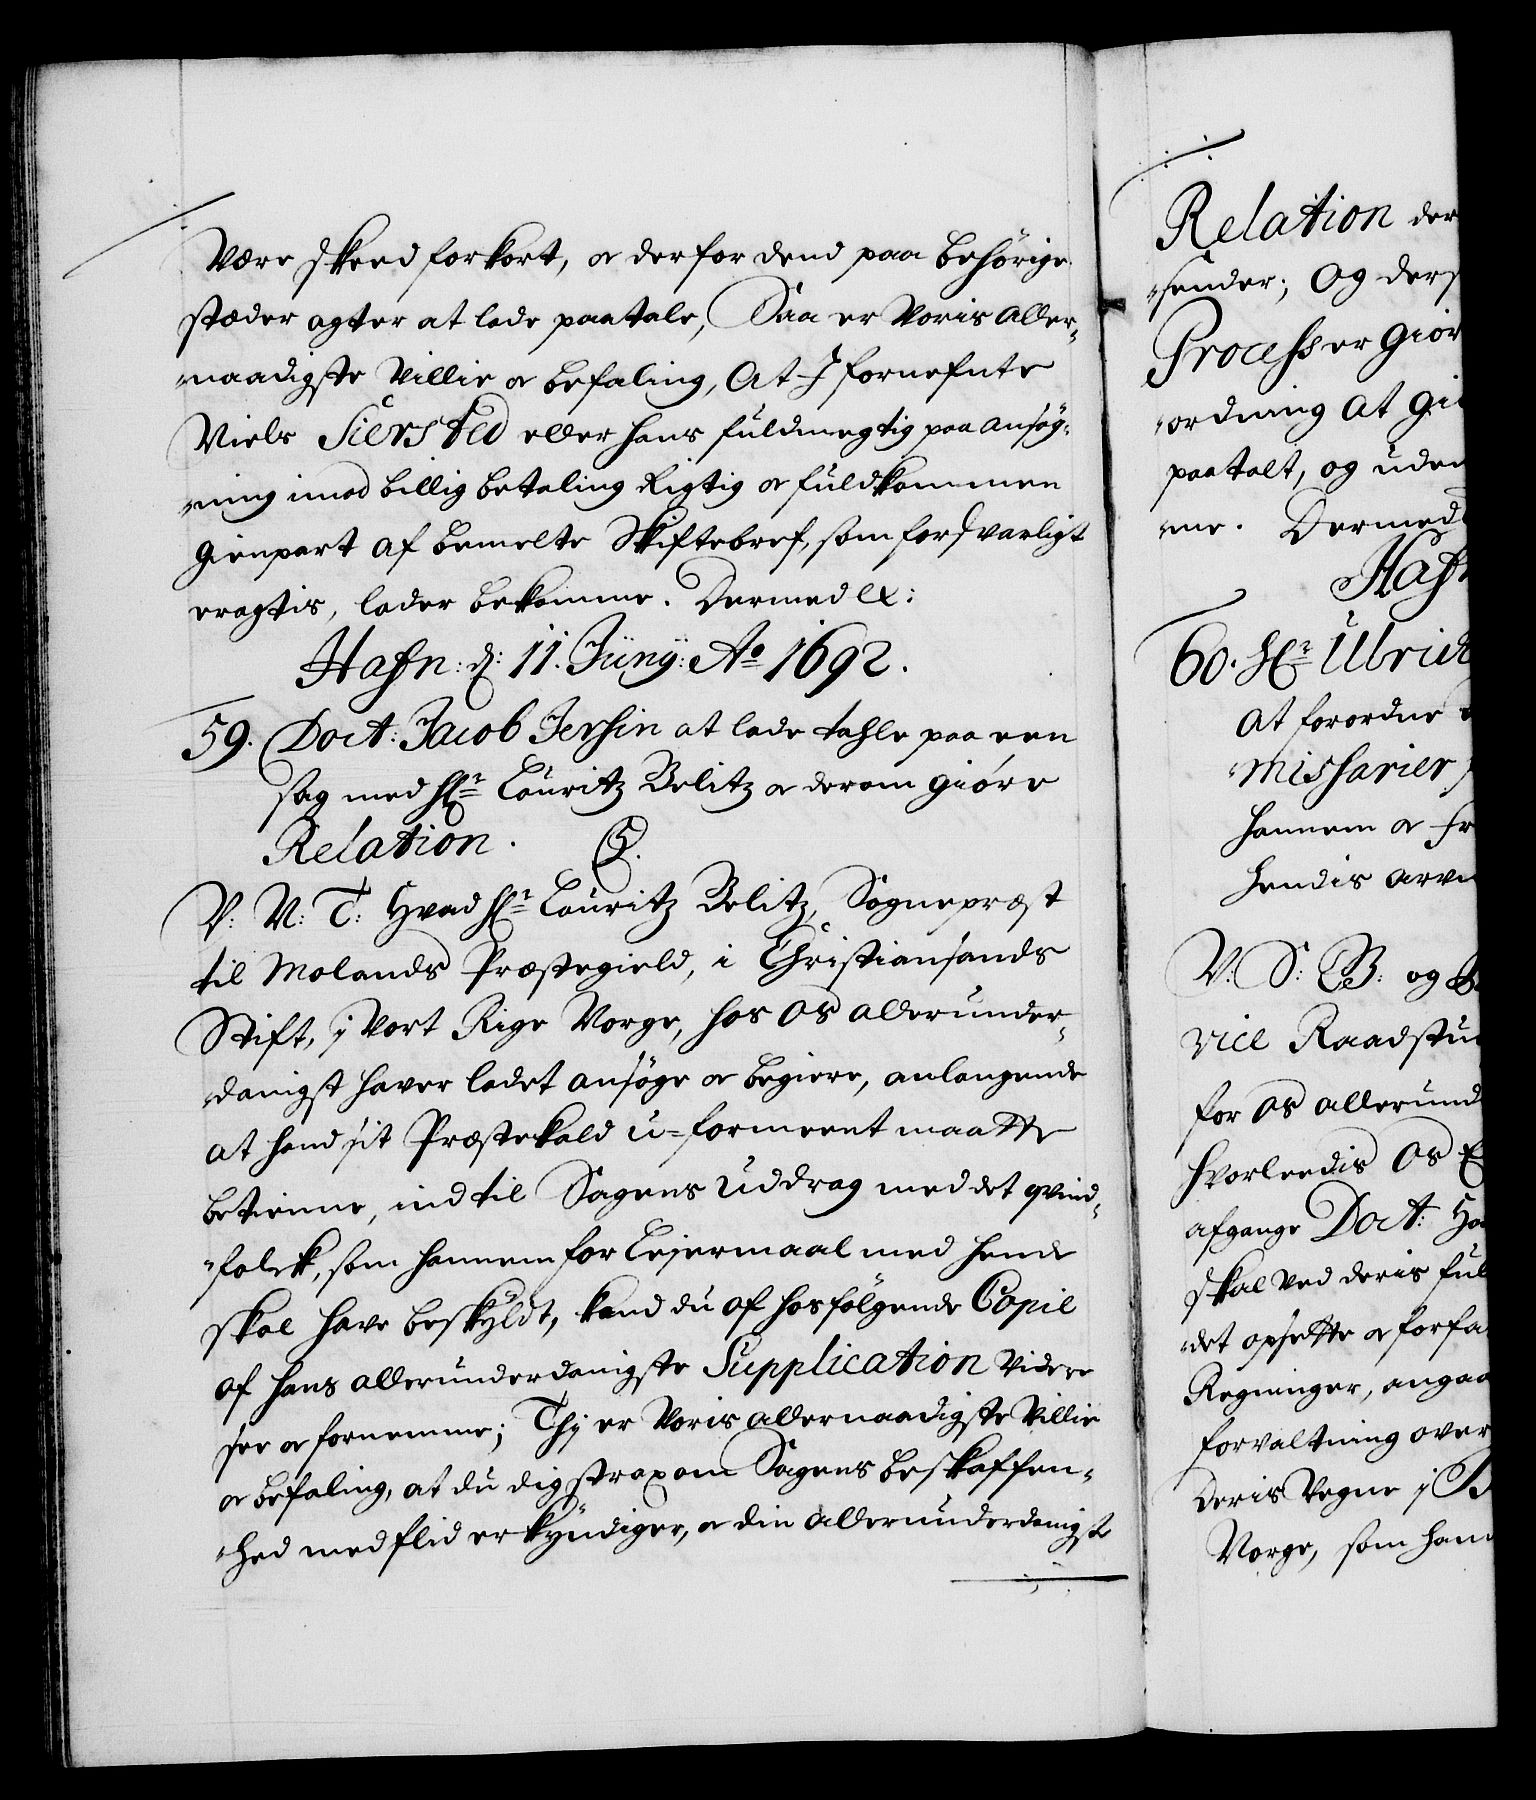 Være skeed forkort, oc derfor dend paa behörige
stæder agter at lade paatale, Saa er Voris Aller-
naadigste Villie oc befaling, At I fornefnte
Niels Siersted eller hans fuldmegtig paa ansög-
ning imod billig betaling Rigtig oc fuldkommen
Gienpart af bemelte Skiftebref, som forsvarligt
eragtis, lader bekomme. Dermed etc:
Hafn: d: 11. Juny: Ao 1692.
59. Doct: Jacob Jersin at lade tahle paa een
sag med Hr Lauritz Belitz oc derom giöre
Relation.
V: N: T: Hvad Hr Lauritz Belitz, Sognepræst
til Molands Præstegield, i Christiansands
Stift, j Vort Rige Norge, hos Os allerunder-
danigst haver ladet ansöge oc begiere, anlangende
at hand sit Præstekald u-formeent maatte
betienne, ind til Sagens Uddrag med det qvind-
folck, som hannem for Lejermaal med hende
skal have beskyldt, kand du af hosfölgende Copie
af hans allerunderdanigste Supplication Videre
see oc fornemme; Thj er Voris allernaadigste Villie
oc befaling, at du dig strax om Sagens beskaffen-
hed med flid erkyndiger, oc din allerunderdanigste
Relation der
sender; Og ders
Processer giör
ordning at gi
paatalt, og uden
me. Dermed
Hafn
60. Hr Ulrich
At forordne
missarier
hannem oc Fr
hendis arve
V: S: B: og
vice Raadstu
for Os allerund
hvorleedis Os
afgange Doct: Ha
skal ved deris ful
det opsette oc forfa
Regninger, angaa
forvaltning over
Deris Vegne j
Norge, som hand